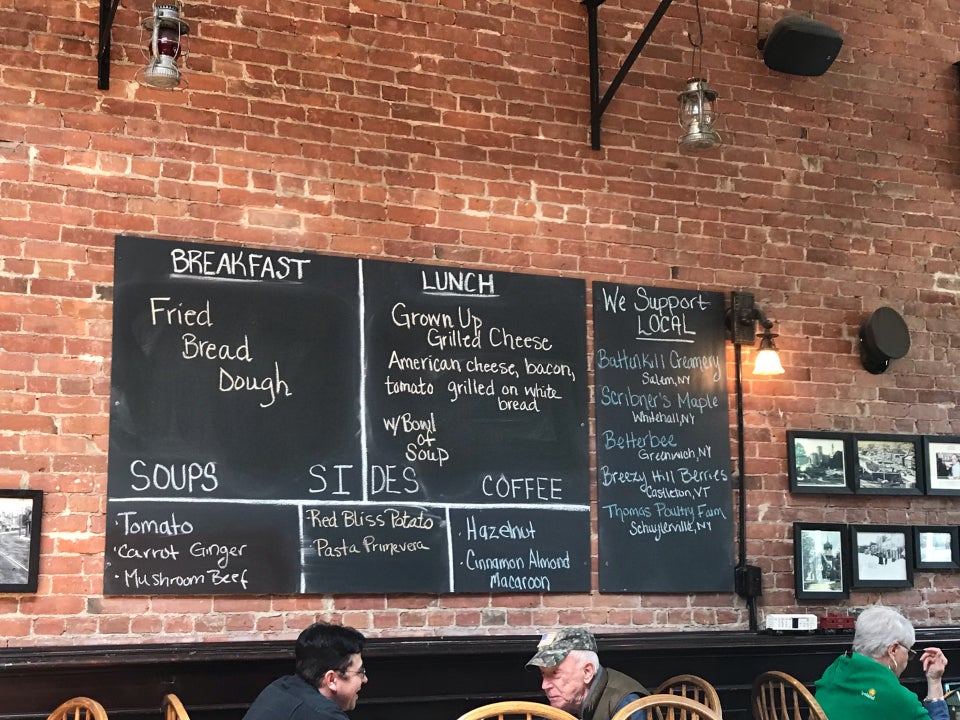 BREAKFAST
Fried
Bread
Dough
LUNCH
Grown Up
Grilled Cheese
American cheese, bacon,
tomato grilled on white
bread
w/Bowl
of
Soup
SOUPS
· Tomato
· Carrot Ginger
· Mushroom Beef
SIDES
Red Bliss Potato
Pasta Primevera
COFFEE
· Hazelnut
· Cinnamon Almond
Macaroon
We Support
LOCAL
Battenkill Creamery
Salem, NY
Scribner's Maple
Whitehall, NY
Betterbee
Greenwich, NY
Breezy Hill Berries
Castleton, VT
Thomas Poultry Farm
Schuylerville, NY